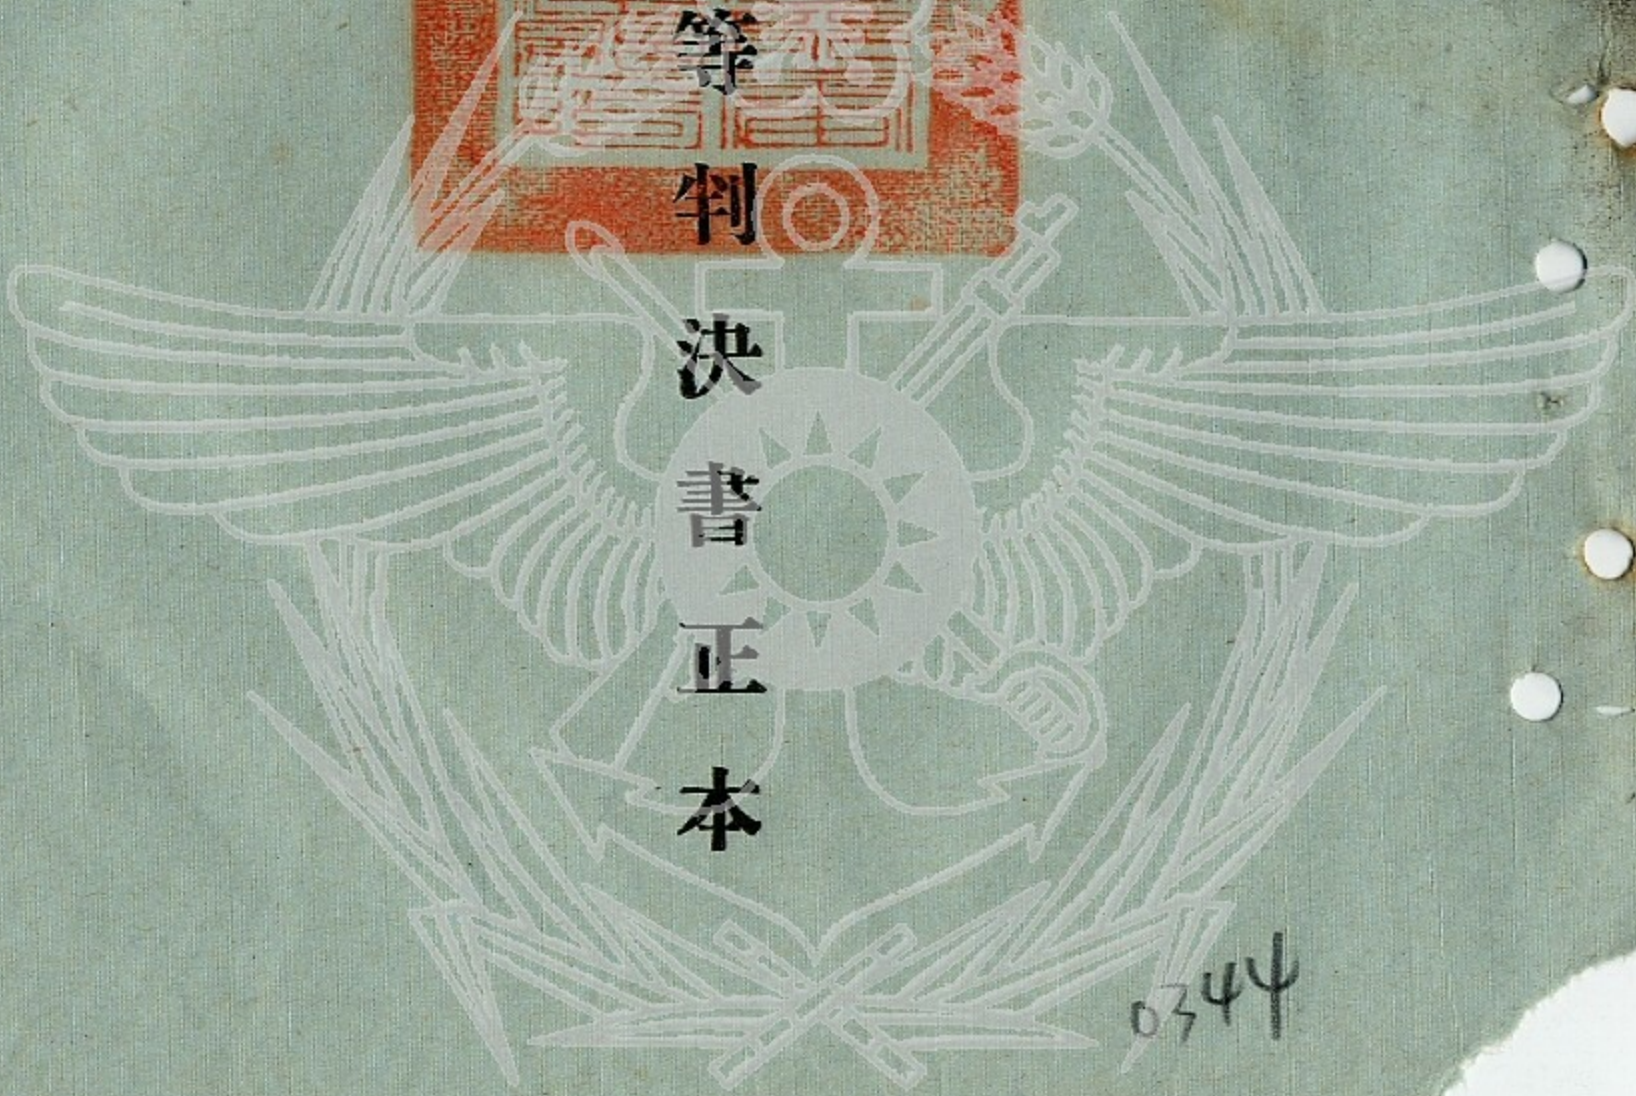 等判決書正本
0344